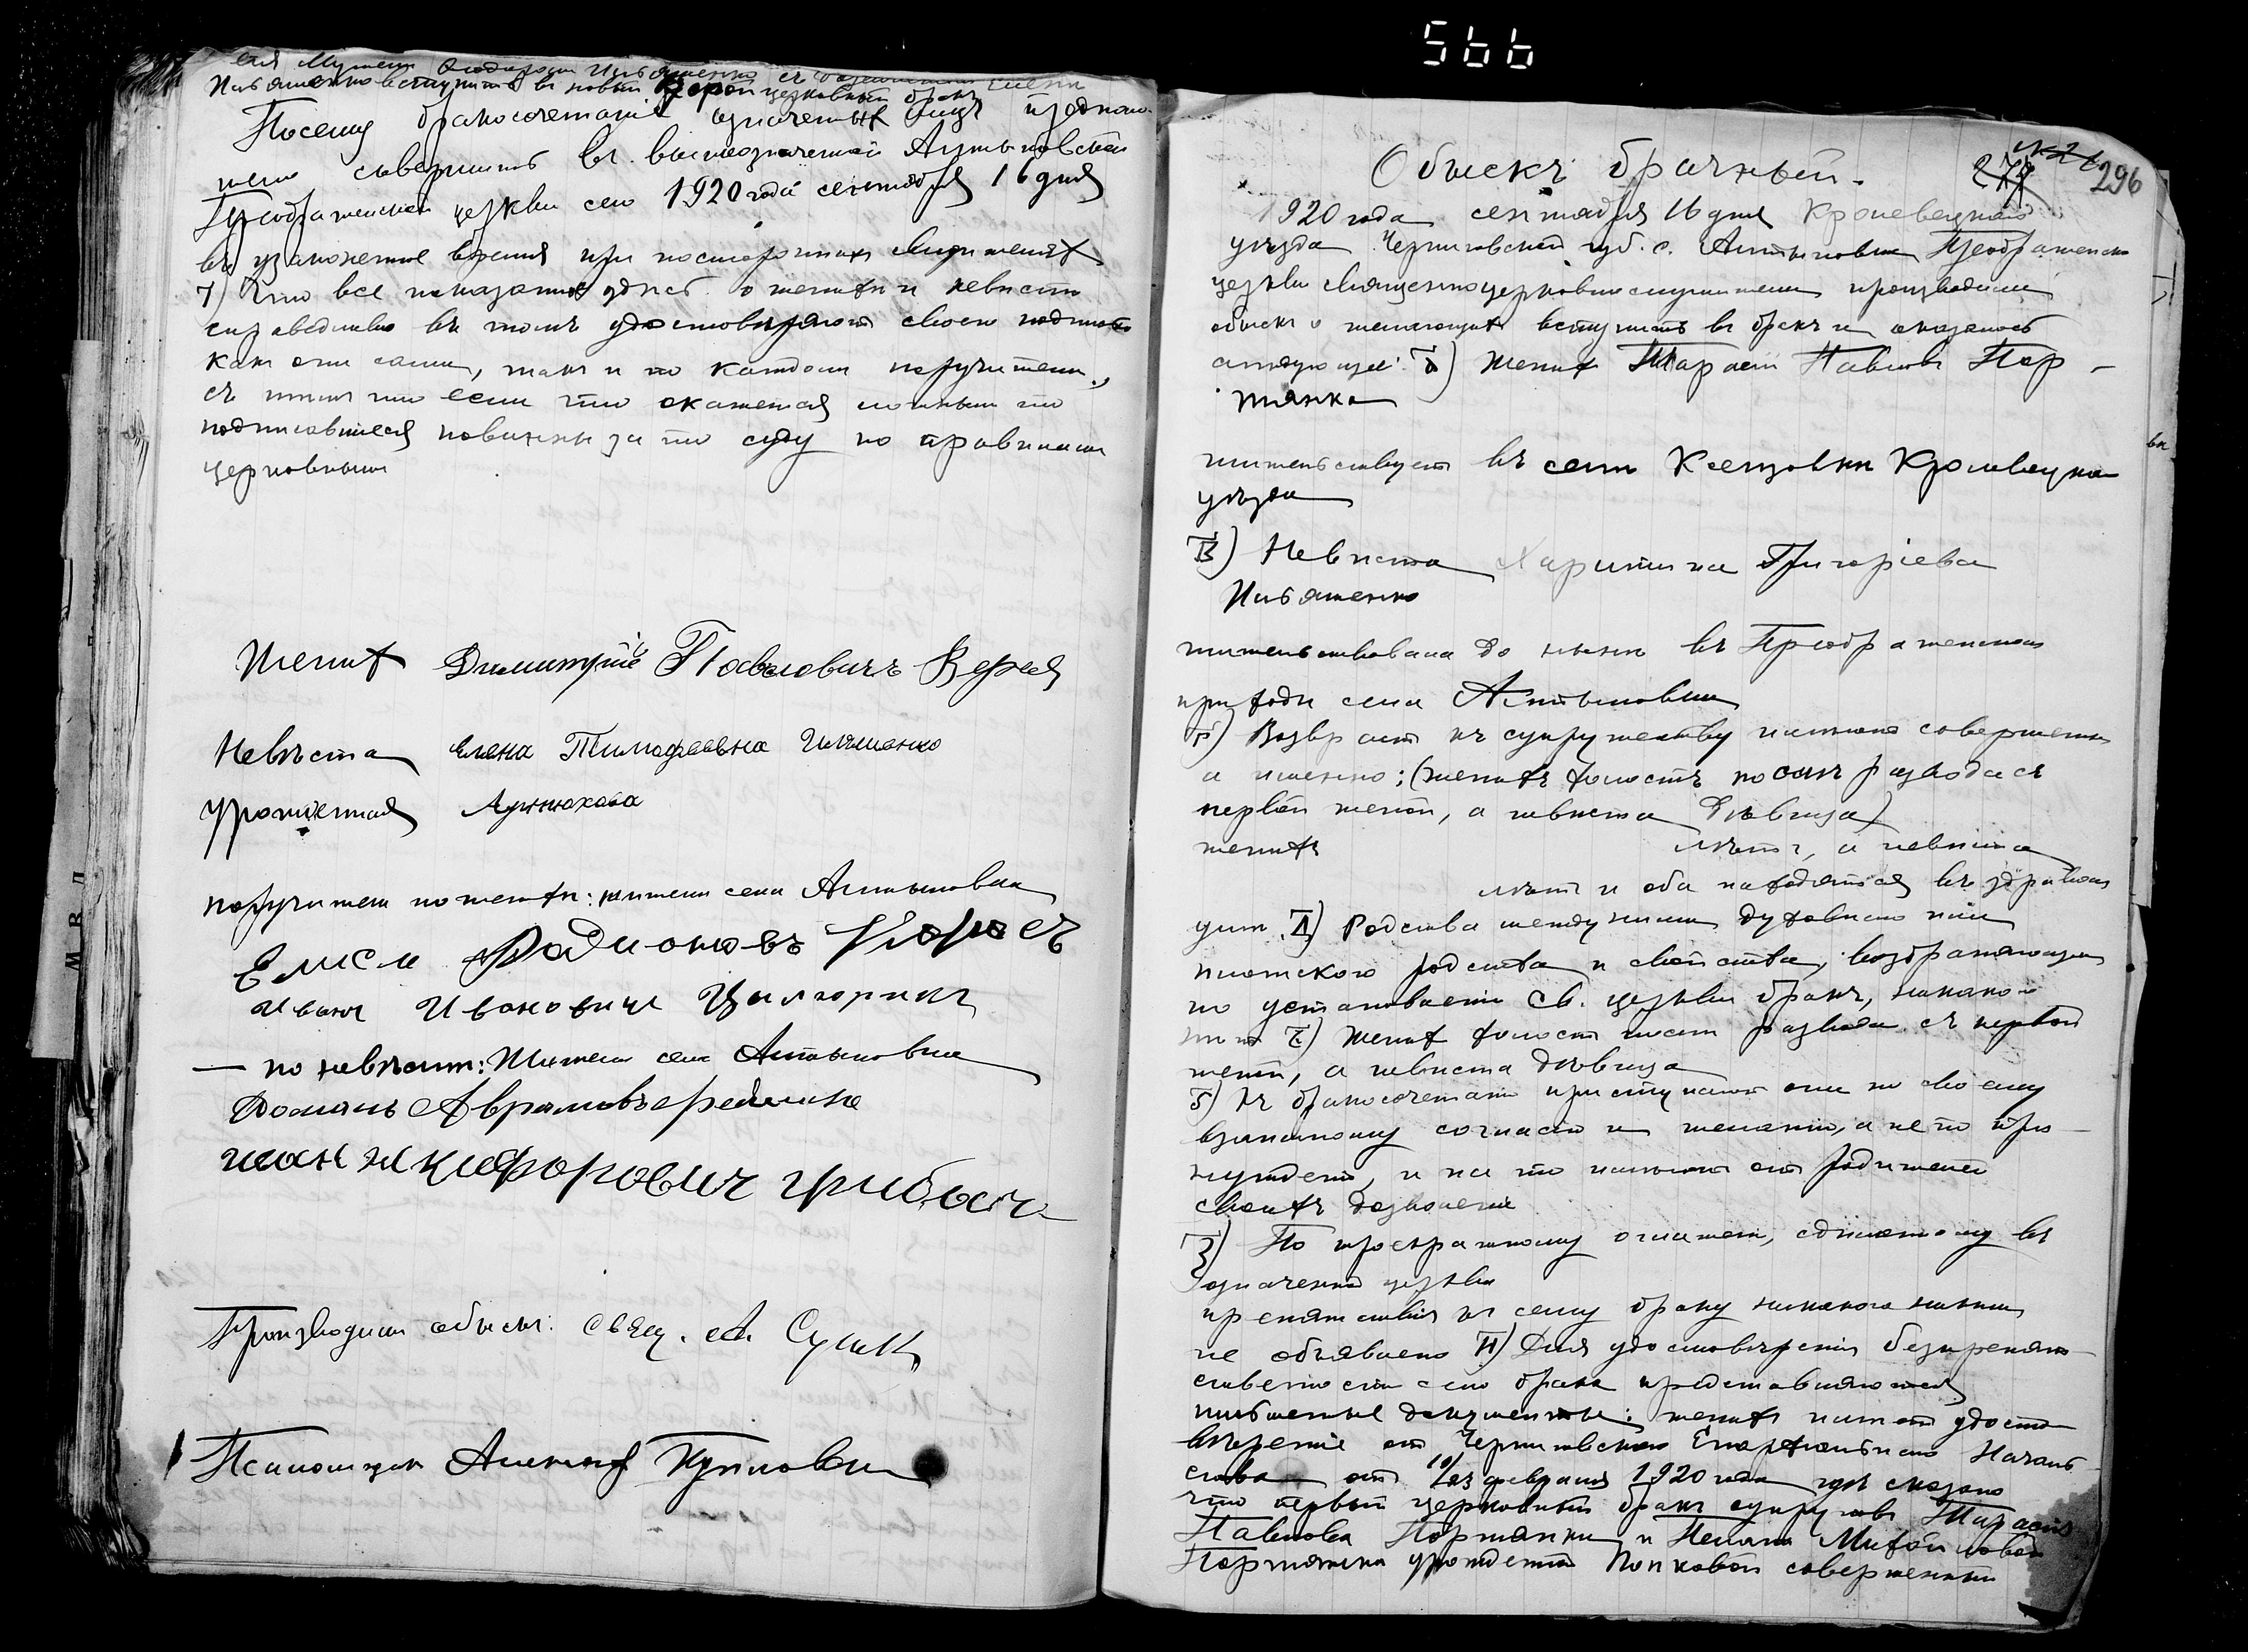 566
Ильяшенко вступить въ новый второй церковный бракъ
Посему бракосочетаніе означенныхъ лицъ предполо-
жено совершить въ вышеозначенной Алтыновской
Преображенской церкви сего 1920 года сентября 16 дня
въ узаконенное время при постороннихъ свидетеляхъ
7) Что все показанное здѣсь о женихѣ и невѣстѣ
справедливо въ томъ удостовѣряютъ своею подписью
какъ они сами, такъ и по каждом поручители,
съ тѣмъ что если что окажется ложнымъ то
подписавшіеся повинны за то суду по правиламъ
церковнымъ
Женихъ Димитрій Павловичъ Верея
Невѣста Елена Тимофеевна Ильяшенко
урожденная
поручители по женихѣ: жители села Алтыновки
Елисей Родионовъ
Иванъ Ивановичъ
— по невѣстѣ: Жители села Алтыновки
Аврамовъ
никифорович грибач
Производили обыскъ: свящ. А.
Псаломщик Алексей
Обыскъ брачный.
296
1920 года сентября 16 дня Кролевецкаго
уѣзда Черниговской губ. с. Алтыновки Преображенской
церкви священноцерковнослужители производили
обыскъ о желающихъ вступить въ бракъ и оказалось
слѣдующее: женихъ Тарасій Павловъ Пор-
тянка
жительствует въ селѣ Ксендзовки Кролевецкаго
уѣзда
В) Невѣста Харитина Григоріева
Ильяшенко
жительствовала до нынѣ въ Преображенскомъ
приходѣ села Алтыновки
Г) Возраст къ супружеству имѣютъ совершенный
а именно: (женихъ холостъ послѣ развода съ
первой женой, а невѣста дѣвица)
женихъ лѣтъ, а невѣста
лѣтъ и оба находятся въ здравомъ
умѣ. Д) Родства между ними духовнаго или
плотского родства и свойства, возбраняющаго
по установленію Св. церкви бракъ, никакого
нѣтъ Е) Женихъ холостъ послѣ развода съ первой
женой, а невѣста дѣвица
Ѕ) Къ бракосочетанію приступаютъ они по своему
взаимному согласію и желанію, а не по при-
нужденію, и на то имѣютъ отъ родителей
своихъ дозволеніе
З) По троекратному оглашенію, сдѣланному въ
означенной церкви
препятствія къ сему браку никакого никѣмъ
не объявлено И) Для удостовѣренія безпрепят-
ственности сего брака представляются
письменные документы: женихъ имѣетъ удосто-
вѣреніе отъ Черниговскаго Епархіальнаго Началь-
ства отъ 10/23 февраля 1920 года гдѣ сказано
что первый церковный бракъ супруговъ Тарасія
Павлова Портянки и Михайловой
Портянка урожденной Попковой совершенный